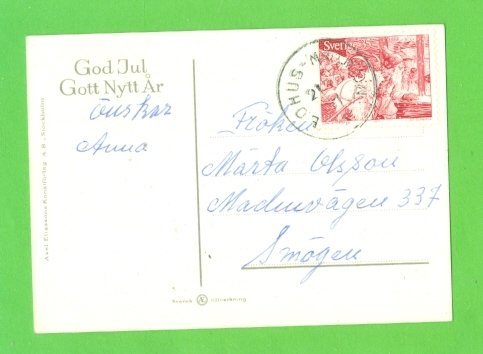 God Jul
Gott Nytt År
önskar
Anna
Axel Eliassons Konstförlag A.B. Stockholm
Sverige
21
Fröken
Märta Olsson
Madenvägen 337
Smögen
Svensk Æ tillverkning